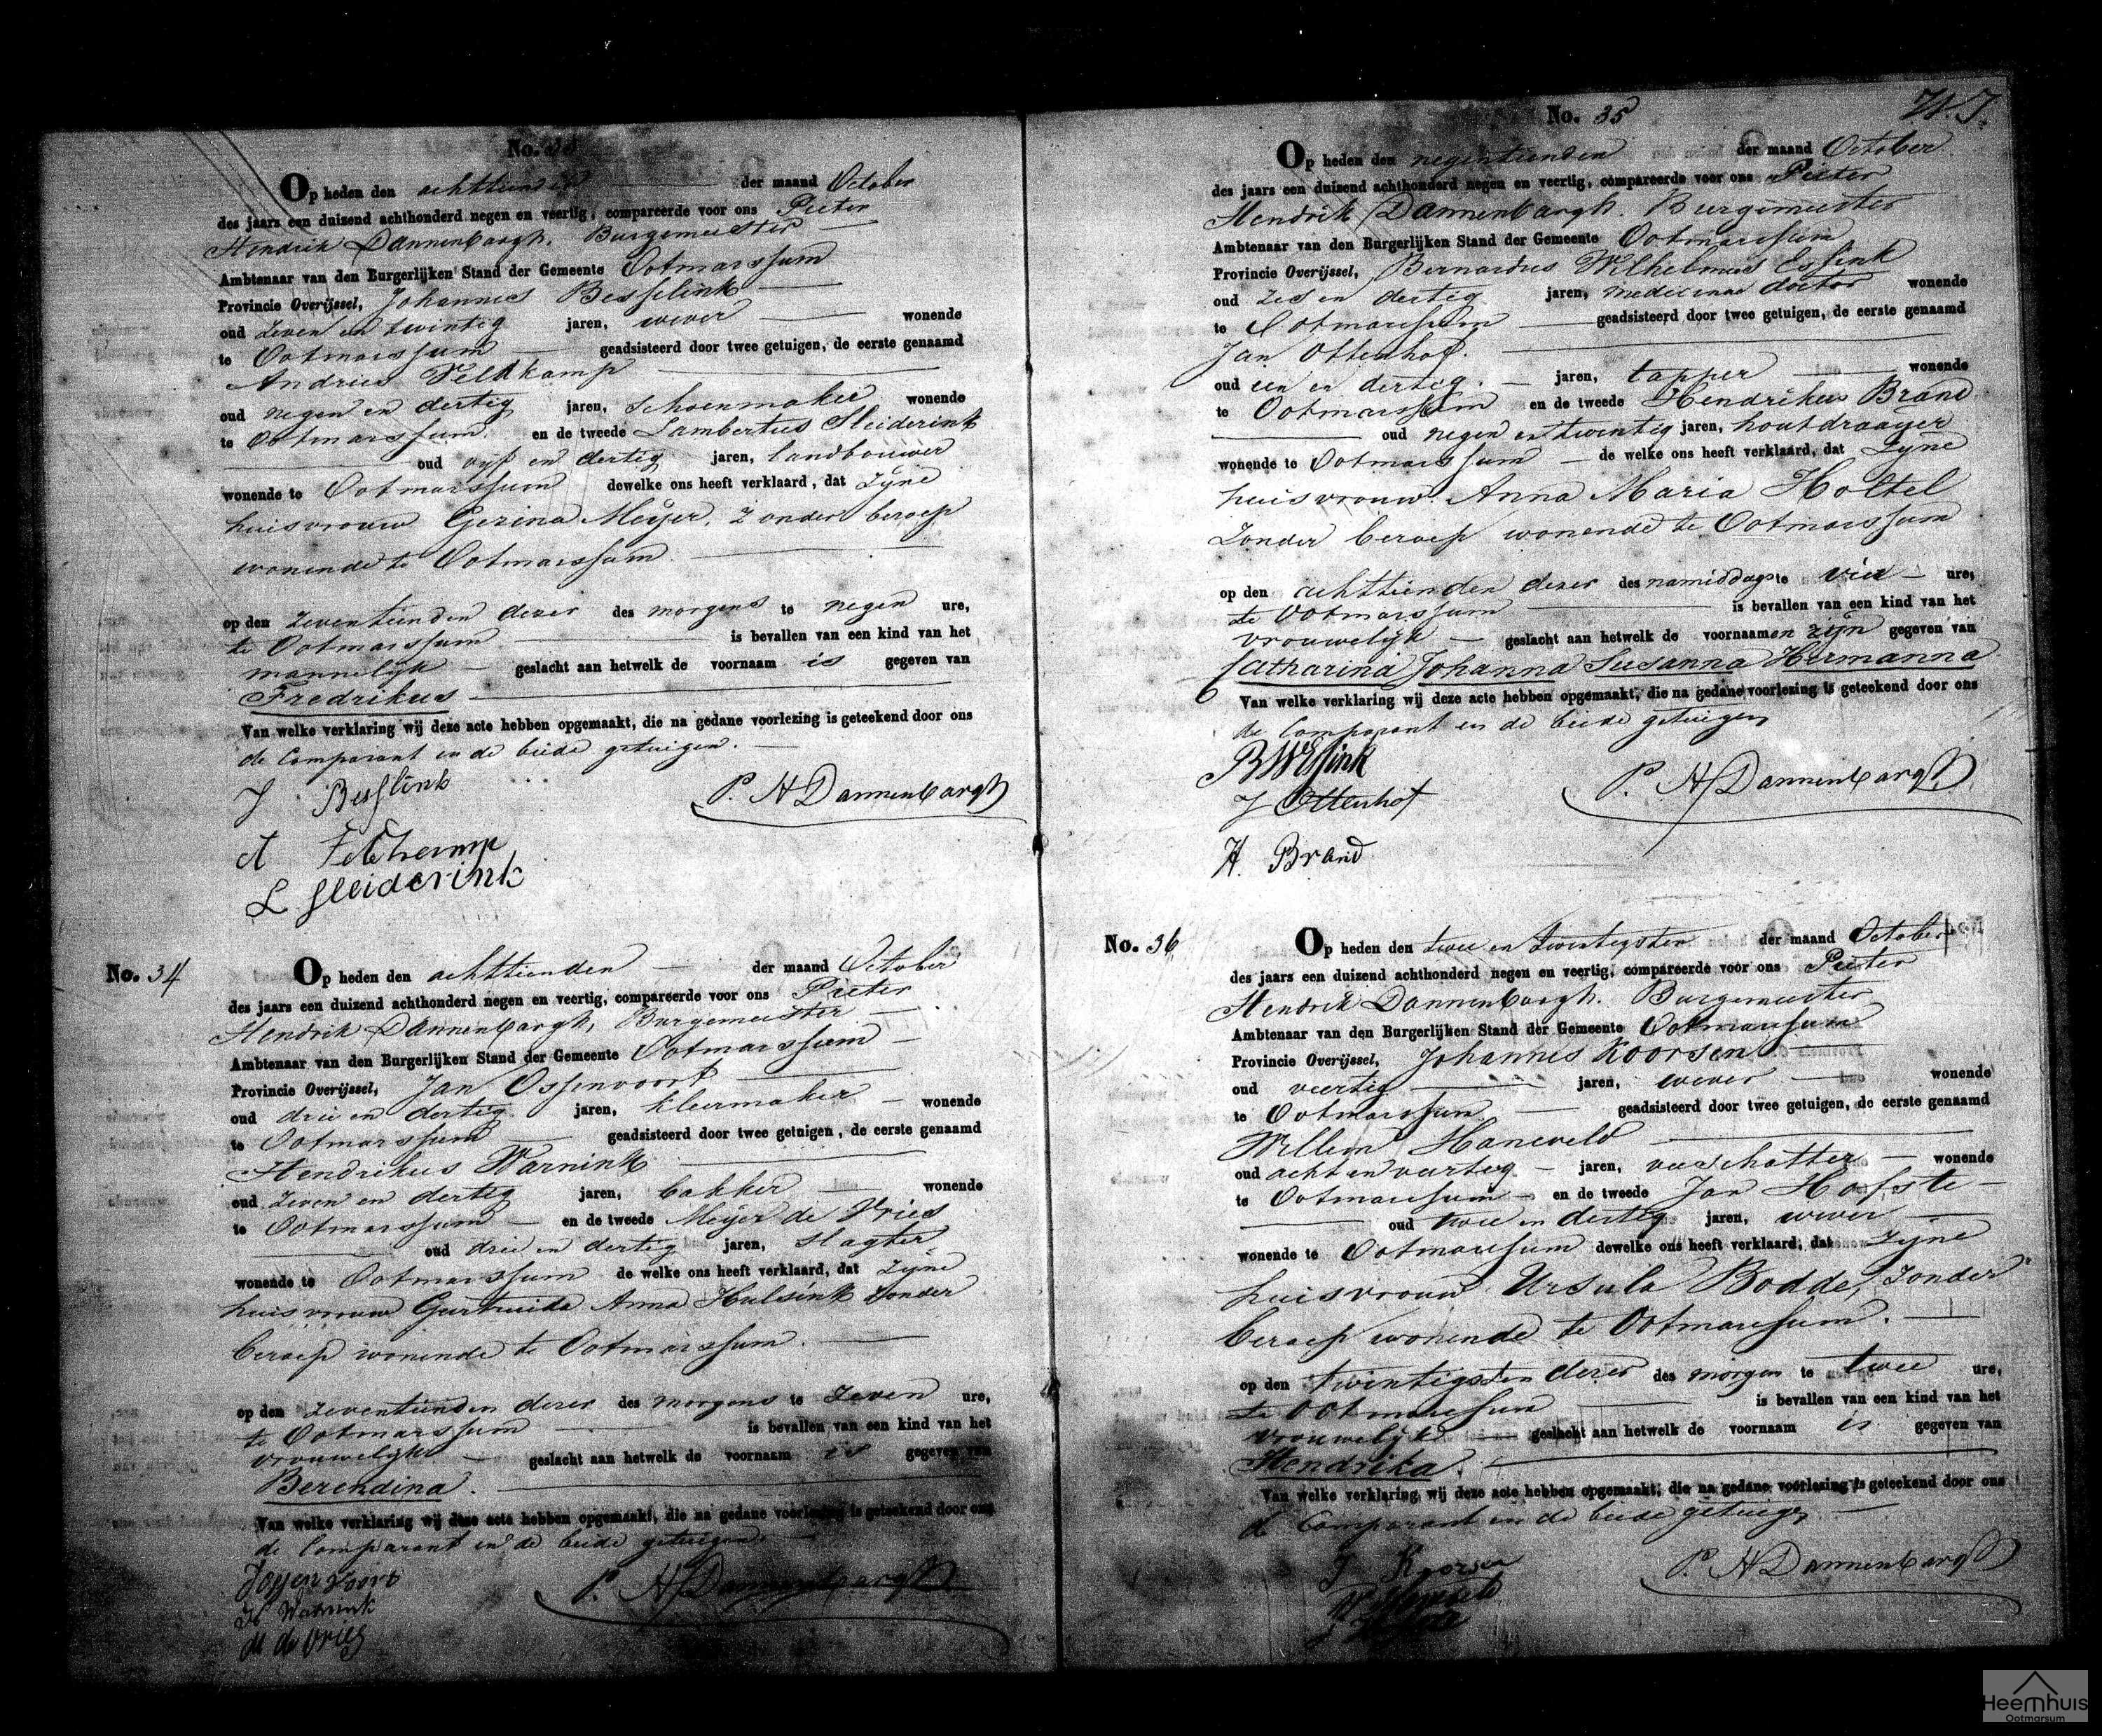 No. 33
Op heden den achttienden der maand October
des jaars een duizend achthonderd negen en veertig, compareerde voor ons Pieter
Hendrik Dannenbargh, Burgemeister
Ambtenaar van den Burgerlijken Stand der Gemeente Ootmarssum
Provincie Overijssel, Johannes Besselink
oud zeven en twintig jaren, wever wonende
te Ootmarssum geadsisteerd door twee getuigen, de eerste genaamd
Andries Veldkamp
oud negen en dertig jaren, Schoenmaker wonende
te Ootmarssum en de tweede Lambertus Sleiderink
oud vijf en dertig jaren, landbouwer
wonende te Ootmarssum dewelke ons heeft verklaard, dat zijne
huisvrouw Gezina Meijer, zonder beroep
wonende te Ootmarssum
op den zeventienden dezer des morgens te negen ure,
te Ootmarssum is bevallen van een kind van het
mannelijk geslacht aan hetwelk de voornaam is gegeven van
Fredrikus
Van welke verklaring wij deze acte hebben opgemaakt, die na gedane voorlezing is geteekend door ons
de Comparant en de beide getuigen.
J Besselink
P. H Dannenbargh
A Feldkamp
L Sleiderink
No. 34
Op heden den achttienden der maand October
des jaars een duizend achthonderd negen en veertig, compareerde voor ons Pieter
Hendrik Dannenbargh, Burgemeister
Ambtenaar van den Burgerlijken Stand der Gemeente Ootmarssum
Provincie Overijssel, Jan Ossenvoort
oud drie en dertig jaren, kleermaker wonende
te Ootmarssum geadsisteerd door twee getuigen, de eerste genaamd
Hendrikus Warnink
oud zeven en dertig jaren, bakker wonende
te Ootmarssum en de tweede Meijer de Vries
oud drie en dertig jaren, slagter
wonende te Ootmarssum de welke ons heeft verklaard, dat zijne
huisvrouw Gertruida Anna Hulsink zonder
beroep wonende te Ootmarssum.
op den zeventienden dezer des morgens te zeven ure,
te Ootmarssum is bevallen van een kind van het
vrouwelijk geslacht aan hetwelk de voornaam is gegeven van
Berendina.
Van welke verklaring wij deze acte hebben opgemaakt, die na gedane voorlezing is geteekend door ons
de Comparant en de beide getuigen.
J Ossenvoort
P. H Dannenbargh
H Warnink
M de Vries
No. 35
Op heden den negentienden der maand October
des jaars een duizend achthonderd negen en veertig, compareerde voor ons Pieter
Hendrik Dannenbargh. Burgemeister
Ambtenaar van den Burgerlijken Stand der Gemeente Ootmarssum
Provincie Overijssel, Bernardus Wilhelmus Essink
oud zes en dertig jaren, medicinae doctor wonende
te Ootmarssum geadsisteerd door twee getuigen, de eerste genaamd
Jan Ottenhof.
oud een en dertig. jaren, tapper wonende
te Ootmarssum en de tweede Hendrikus Brand
oud negen en twintig jaren, houtdraayer
wonende te Ootmarssum de welke ons heeft verklaard, dat zijne
huisvrouw. Anna Maria Holtel
zonder beroep wonende te Ootmarssum
op den achttienden dezer des namiddags te vier ure,
te Ootmarssum is bevallen van een kind van het
vrouwelijk geslacht aan hetwelk de voornaamen zijn gegeven van
Catharina Johanna Susanna Hermanna
Van welke verklaring wij deze acte hebben opgemaakt, die na gedane voorlezing is geteekend door ons
de Comparant en de beide getuigen
BW Essink
P. H Dannenbargh
J Ottenhof
H. Brand
No. 36
Op heden den twee en twintigsten der maand October
des jaars een duizend achthonderd negen en veertig, compareerde voor ons Pieter
Hendrik Dannenbargh. Burgemeister
Ambtenaar van den Burgerlijken Stand der Gemeente Ootmarssum
Provincie Overijssel, Johannes Koorsen
oud veertig jaren, wever wonende
te Ootmarssum geadsisteerd door twee getuigen, de eerste genaamd
Willem Haneveld
oud acht en veertig jaren, veeschatter wonende
te Ootmarssum en de tweede Jan Hofste
oud twee en dertig jaren, wever
wonende te Ootmarssum dewelke ons heeft verklaard, dat zijne
huisvrouw Ursula Bodde, zonder
beroep wonende te Ootmarssum.
op den twintigsten dezer des morgen te twee ure,
te Ootmarssum is bevallen van een kind van het
vrouwelijk geslacht aan hetwelk de voornaam is gegeven van
Hendrika.
Van welke verklaring wij deze acte hebben opgemaakt, die na gedane voorlezing is geteekend door ons
de Comparant en de beide getuigen
J Koorsen
P. H Dannenbargh
Heemhuis
Ootmarsum